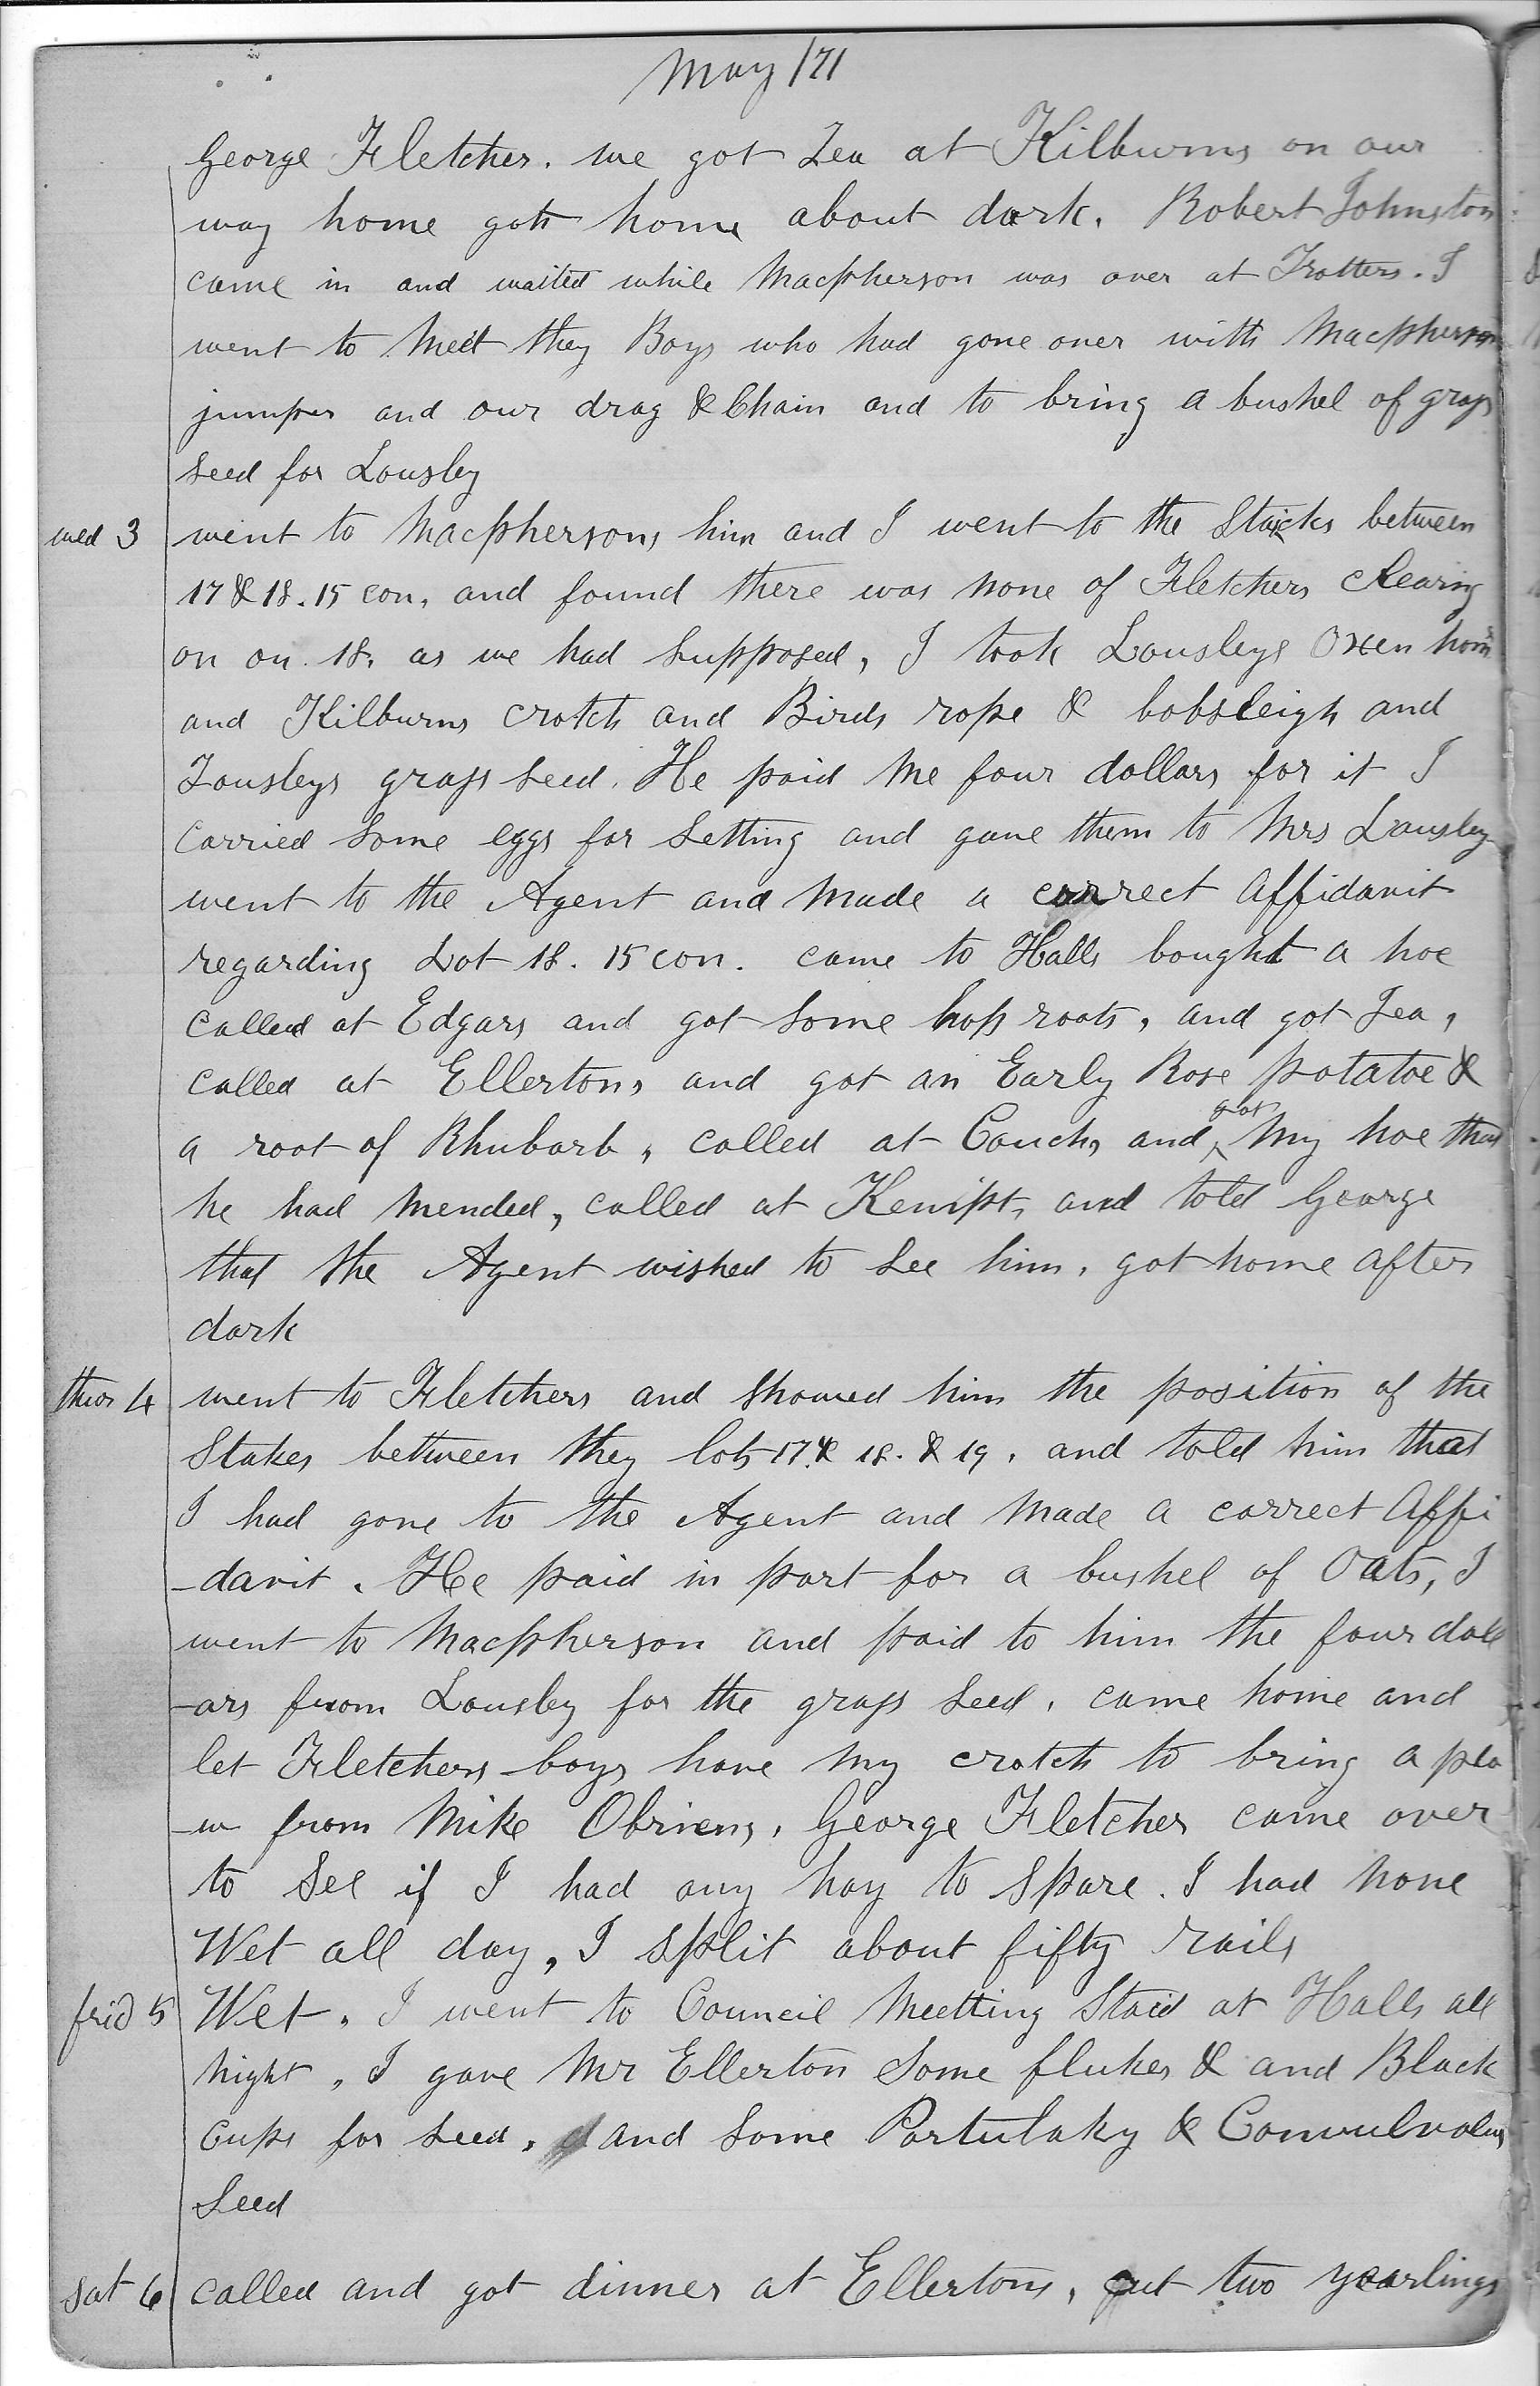 May /71
George Fletcher. we got Tea at Kilburns on our
way home gott home about dark. Robert Johnston
came in and waited while Macpherson was over at Trotters. I
went to meet they Boys who had gone over with Macpherson
jumper and our drag & Chain and to bring a bushel of grass
seed for Lousley
wed 3 went to Macphersons him and I went to the Stakes between
17 & 18. 15 con. and found there was none of Fletchers Clearing
on on 18. as we had supposed, I took Lousleys Oxen home
and Kilburns crotch and Birds rope & bobsleigh and
Lousleys grass seed. He paid me four dollars for it I
carried some eggs for setting and gave them to Mrs Lousley
went to the Agent and made a correct affidavit
regarding Lot 18. 15 con. came to Halls bought a hoe
called at Edgars and got some hop roots, and got Tea,
called at Ellertons and got an Early Rose potatoe &
a root of Rhubarb, called at Couchs and got my hoe that
he had mended, called at Kempts, and told George
that the Agent wished to see him, got home after
dark
thur 4 went to Fletchers and showed him the position of the
Stakes between they lots 17 & 18. & 19. and told him that
I had gone to the Agent and made a correct Affi
-davit. He paid in part for a bushel of Oats, I
went to Macpherson and paid to him the four doll
-ars from Lousley for the grass seed. came home and
let Fletchers boys have my crotch to bring a plo
-w from Mike Obriens. George Fletcher came over
to see if I had any hay to spare. I had none
Wet all day, I split about fifty rails
frid 5 Wet. I went to Council Meetting Staid at Halls all
night, I gave Mr Ellerton some flukes & and Black
Cups for seed, and some Portulaky & Convulvolus
Seed
sat 6 called and got dinner at Ellertons, put two yearlings